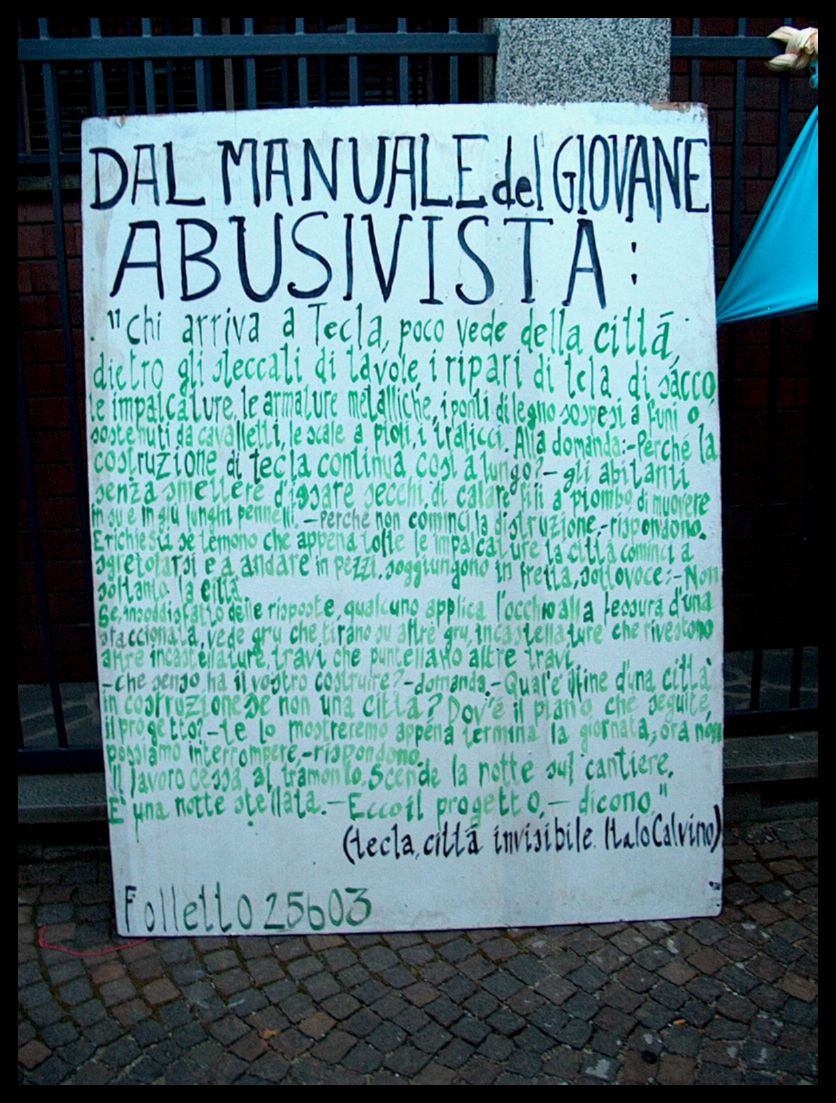 DAL MANUALE del GIOVANE
ABUSIVISTA:
"chi arriva a Tecla, poco vede della città,
dietro gli steccati di tavole, i ripari di tela di sacco,
le impalcature, le armature metalliche, i ponti di legno sospesi a funi o
sostenuti da cavalletti, le scale a pioli, i tralicci. Alla domanda:-Perché la
costruzione di tecla continua così a lungo?- gli abitanti
senza smettere d'issare secchi, di calare fili a piombo di muovere
in su e in giù lunghi pennelli, -perché non cominci la distruzione-rispondono.
E richiesti se temono che appena tolte le impalcature la città cominci a
sgretolarsi e a andare in pezzi. soggiungono in fretta, sottovoce:-Non
soltanto la città.
Se, insoddisfatto delle risposte, qualcuno applica l'occhio alla fessura d'una
staccionata, vede gru che tirano su altre gru, incastellature che rivestono
altre incastellature, travi che puntellano altre travi
-che senso ha il vostro costruire?-domanda.-Qual'è il fine d'una città
in costruzione se non una città? Dov'è il piano che seguite,
il progetto?-te lo mostreremo appena termina la giornata, ora non
possiamo interrompere,-rispondono.
Il lavoro cessa al tramonto. Scende la notte sul cantiere.
E' una notte stellata.-Ecco il progetto,-dicono."
(tecla, città invisibile. Italo Calvino)
Folletto 25603